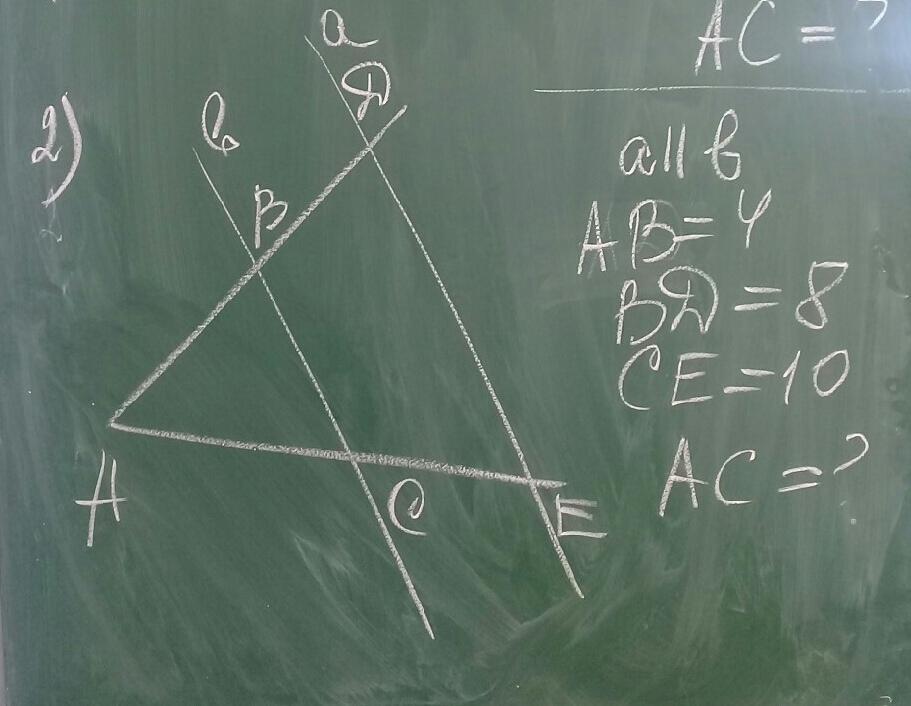 AC = ?
2)
a
D
b
B
A
C
E
a || b
AB = 4
BD = 8
CE = 10
AC = ?